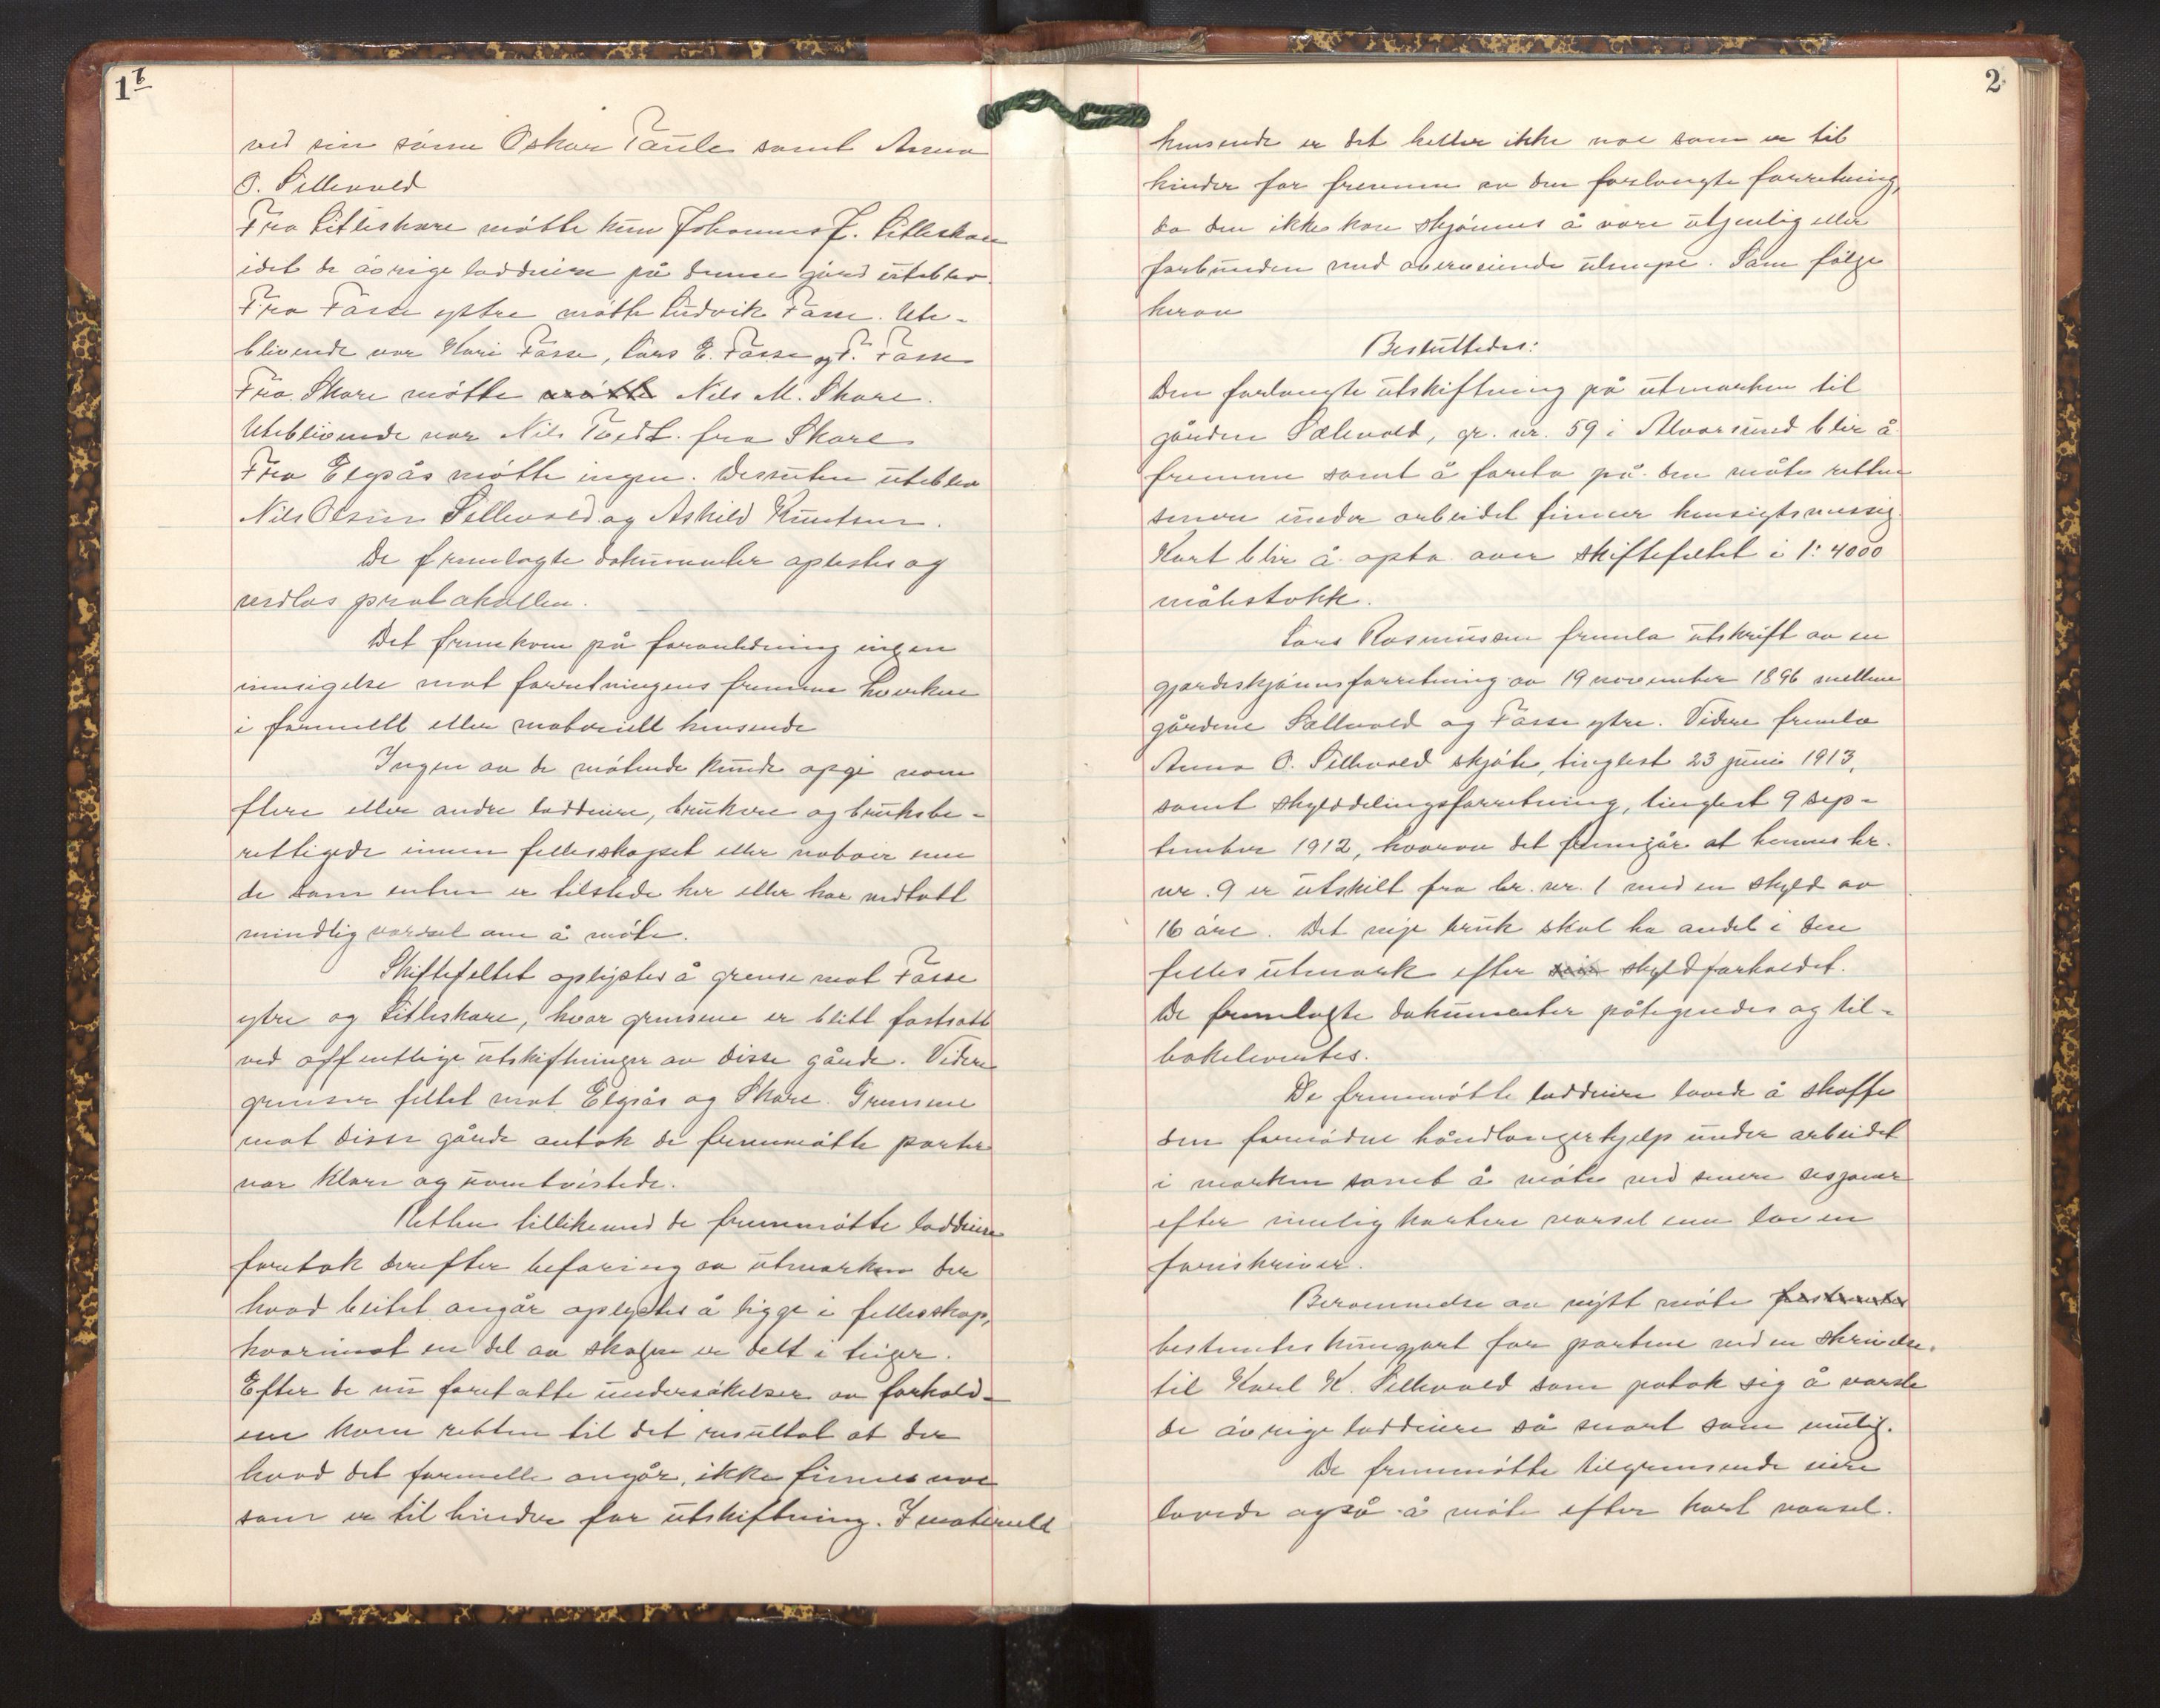 1 b
ved sin sönn Oskar Taule samt Anna
O. Sellevold
Fra Litleskare mötte kun Johannes J. Litleskare
idet de övrige loddeiere på denne gård uteblev.
Fra Fosse ytre mötte Ludvik Fosse. Ute-
blivende var Kari Fosse, Lars E. Fosse og T. Fosse
Fra Skare mötte mötte Nils M. Skare.
Uteblivende var Nils Tvedt fra Skare
Fra Elgsås mötte ingen. Desuten uteblev
Nils Olsen Sellevold og Askild Knutsen.
De fremlagte dokumenter oplestes og
vedlas protokollen.
Det fremkom på foranledning ingen
innsigelse mot forretningens fremme hverken
i formell eller materiell hensende
Ingen av de mötende kunde opgi noen
flere eller andre loddeiere, brukere og bruksbe-
rettigede innen fellesskapet eller naboer enn
de som enten er tilstede her eller har vedtatt
mindlig varsel om å möte.
Skiftefeltet oplystes å grense mot Fosse
ytre og Litleskare, hvor grensene er blitt fastsatt
ved offentlige utskiftninger av disse gårde. Videre
grenser feltet mot Elgsås og Skare. Grensene
mot disse gårde antok de fremmötte parter
var klare og uomtvistede.
Retten tillikemed de fremmötte loddeiere
foretok derefter befaring av utmarken der
hvad beitet angår oplystes å ligge i fellesskap,
hvorimot en del av skogen er delt i teiger.
Efter de nu foretatte undersökelser av forhold-
ene kom retten til det resultat at der
hvad det formelle angår, ikke finnes noe
som er til hinder for utskiftning. I materiell
2
hensende er det heller ikke noe som er til
hinder for fremme av den forlangte forretning,
da den ikke kan skjönnes å være utjenlig eller
forbunden med overveiende ulempe. Som fölge
herav
Besluttedes:
Den forlangte utskiftning på utmarken til
gården Sælevold, gr. nr. 59 i Alvarsund blir å
fremme samt å foreta på den måte retten
senere under arbeidet finner hensigtsmessig.
Kart blir å opta over skiftefeltet i 1:4000
målestokk.
Lars Rasmussen fremla utskrift av en
gjerdeskjönnsforretning av 19 november 1896 mellem
gårdene Sællevold og Fosse ytre. Videre fremla
Anna O. Sellevold skjöte, tinglest 23 juni 1913,
samt skylddelingsforretning, tinglest 9 sep-
tember 1912, hvorav det fremgår at hennes br.
nr. 9 er utskilt fra br. nr. 1 med en skyld av
16 öre. Det nye bruk skal ha andel i den
felles utmark efter sin skyldforholdet.
De fremlagte dokumenter påtegnedes og til-
bakelevertes.
De fremmötte loddeiere lovede å skaffe
den fornödne håndlangerhjelp under arbeidet
i marken samt å möte ved senere sesjoner
efter mulig kortere varsel enn loven
foreskriver.
Berammelse av nytt möte fastsettes
bestemtes kungjort for partene ved en skrivelse
til Karl K. Sellevold som påtok sig å varsle
de övrige loddeiere så snart som mulig.
De fremmötte tilgrensende eiere
lovede også å möte efter kort varsel.